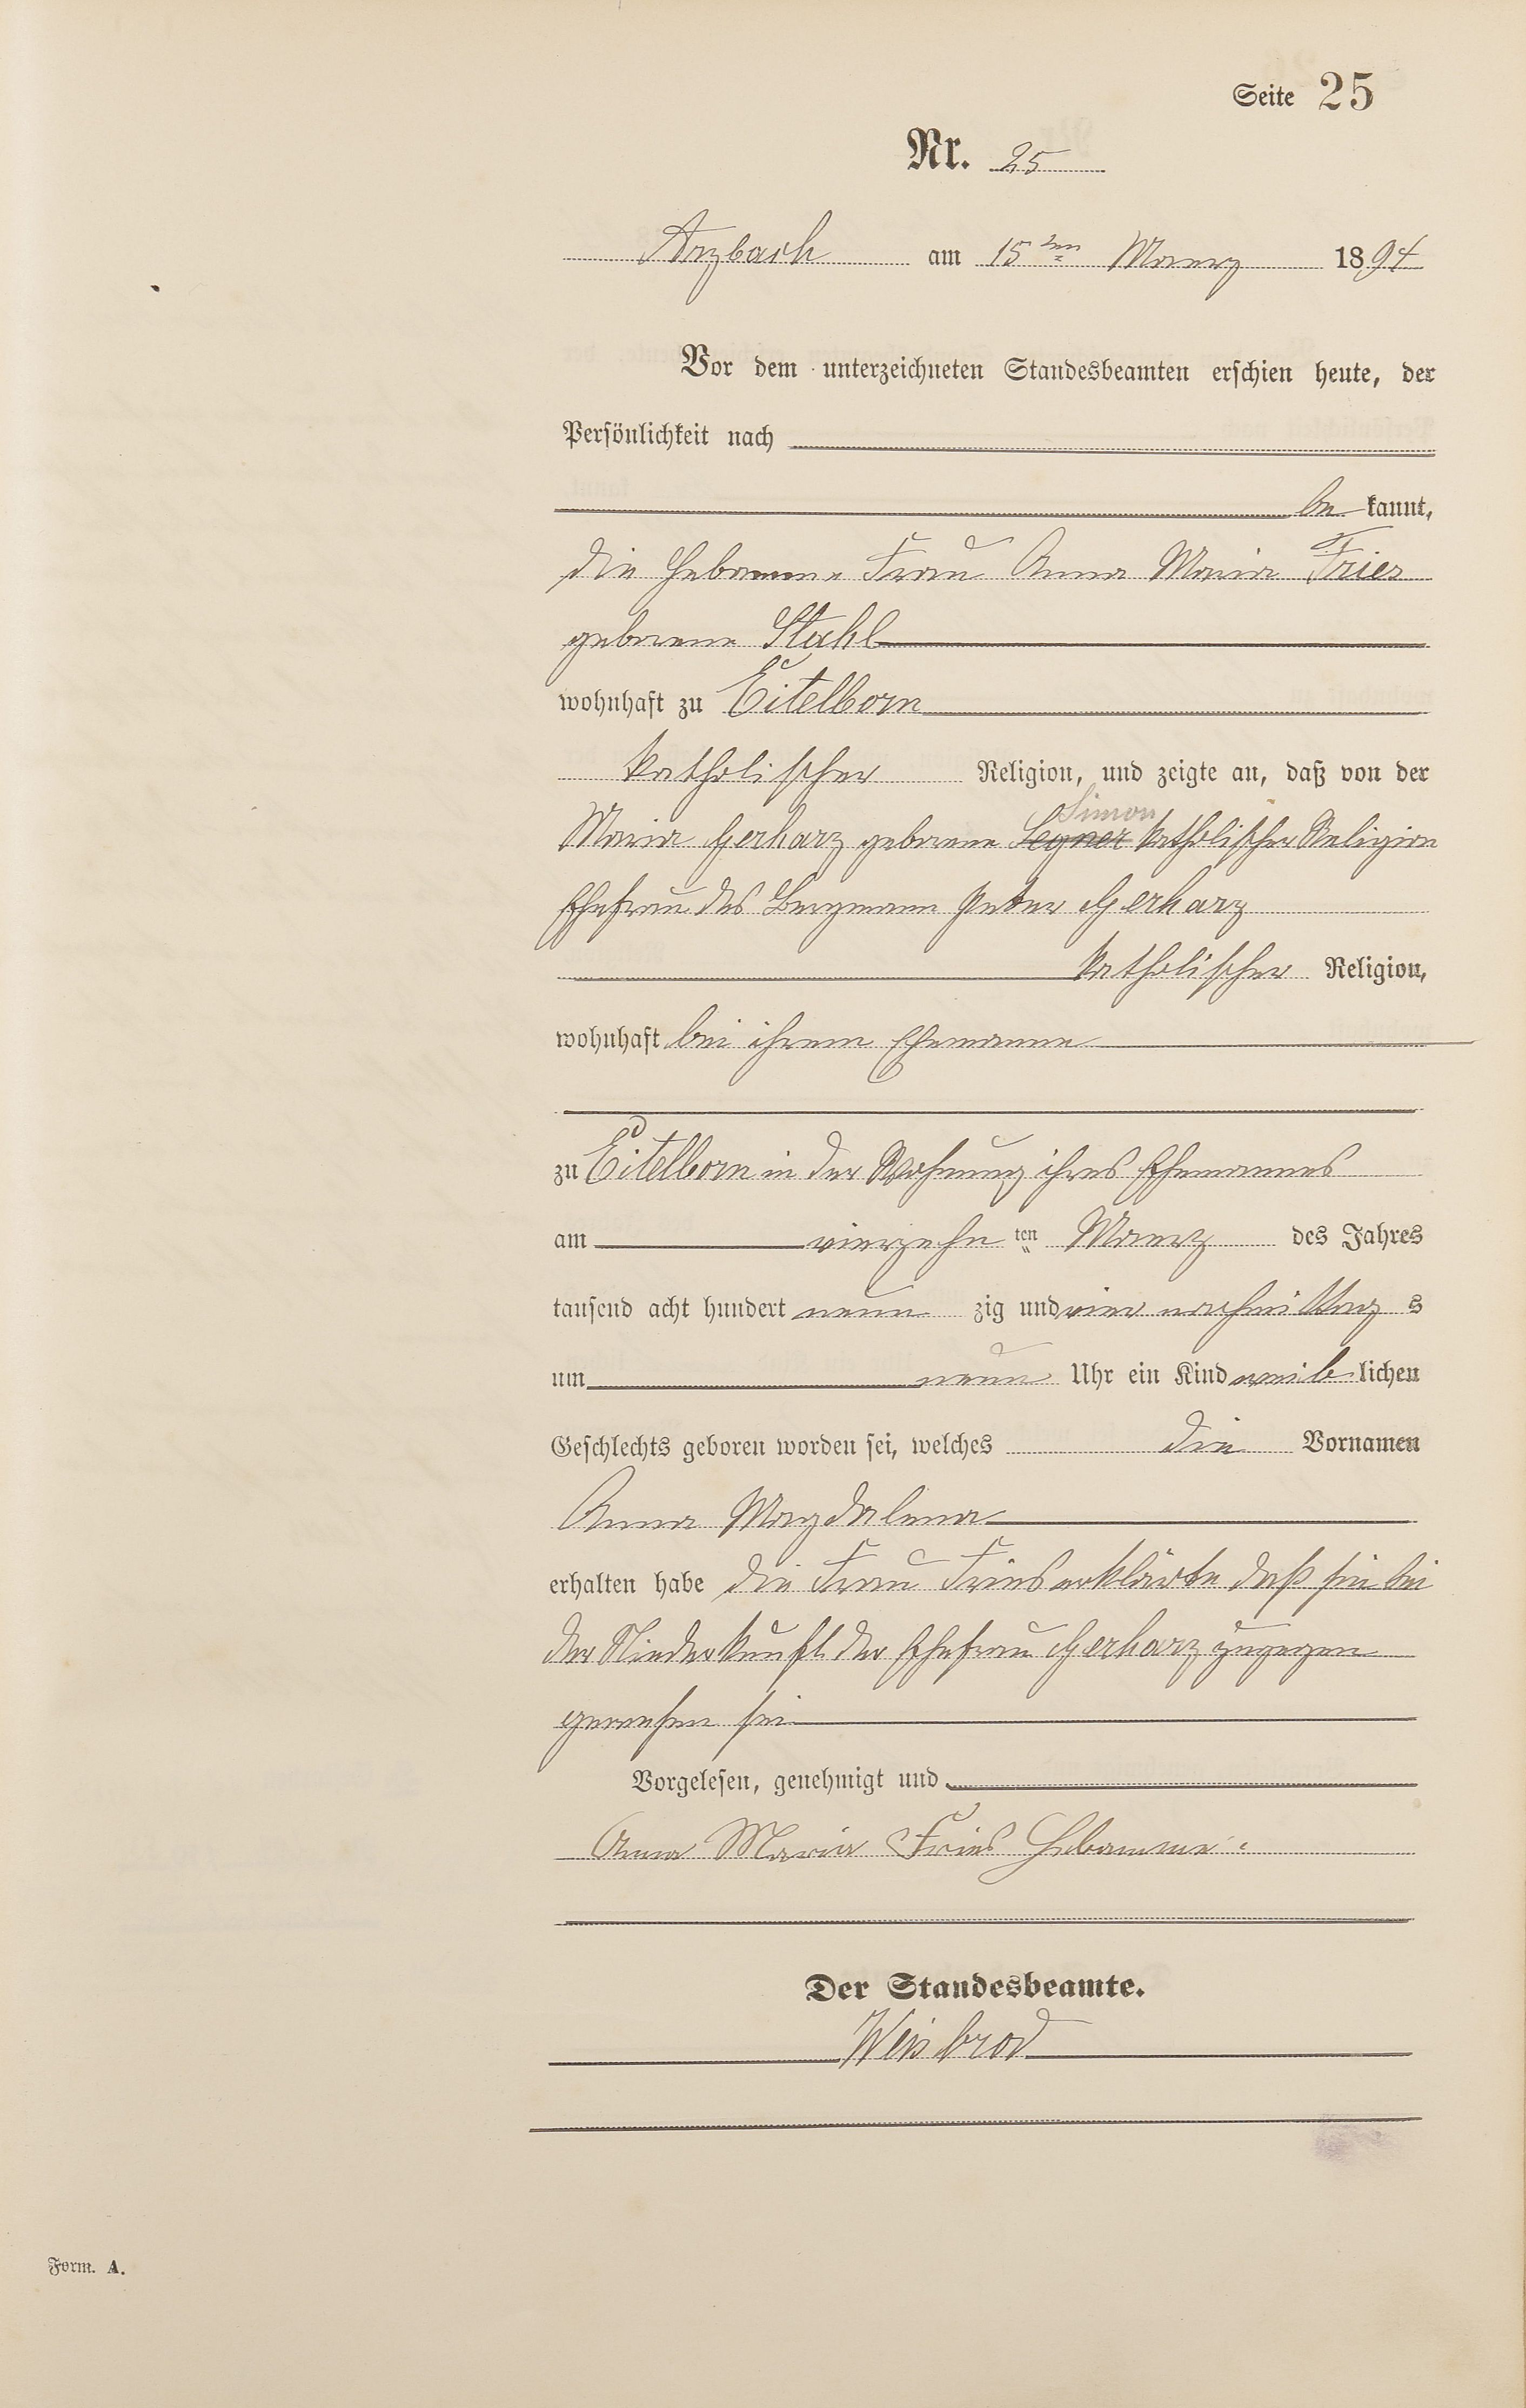 Seite 25
Nr. 25
Arzbach am 15ten Maerz 1894
Vor dem unterzeichneten Standesbeamten erschien heute, der
Persönlichkeit nach
be kannt,
die Hebamme Frau Anna Maria Fries
geborene Stahl
wohnhaft zu Eitelborn
katholischer Religion, und zeigte an, daß von der
Simon
Maria Gerharz geborene Legner katholischer Religion
Ehefrau des Bergmann Peter Gerharz
katholischer Religion,
wohnhaft bei ihrem Ehemanne
zu Eitelborn in der Wohnung ihres Ehemannes
am vierzehn ten Maerz des Jahres
tausend acht hundert neun zig und vier nachmittag s
um neun Uhr ein Kind weib lichen
Geschlechts geboren worden sei, welches die Vornamen
Anna Magdalena
erhalten habe die Frau Fries erklärte daß sie bei
der Niederkunft der Ehefrau Gerharz zugegen
gewesen sei
Vorgelesen, genehmigt und
Anna Maria Fries Hebamme.
Der Standesbeamte.
Weisbrod
Form. A.